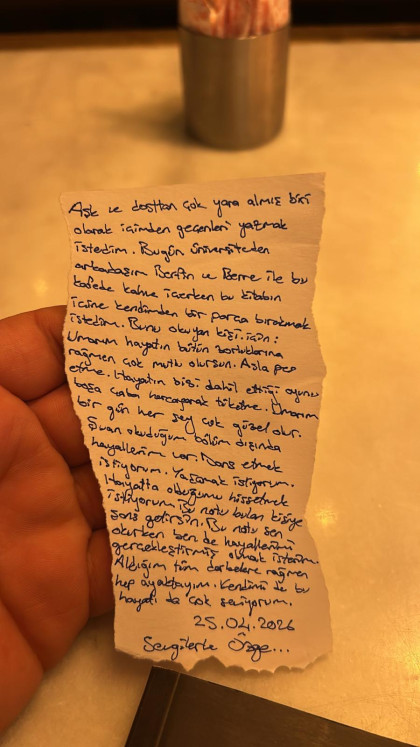 Aşk ve dosttan çok yara almış biri
olarak içimden geçenleri yazmak
istedim. Bugün üniversiteden
arkadaşım Berfin ve Berre ile bu
kafede kahve içerken bu kitabın
içine kendimden bir parça bırakmak
istedim. Bunu okuyan kişi için:
Umarım hayatın bütün zorluklarına
rağmen çok mutlu olursun. Asla pes
etme. Hayatın bizi dahil ettiği oyunu
boşa çaba harcayarak tüketme. Umarım
bir gün her şey çok güzel olur.
Şuan okuduğum bölüm dışında
hayallerim var. Dans etmek
istiyorum. Yazmak istiyorum.
Hayatta olduğumu hissetmek
istiyorum. Bu notu bulan kişiye
şans getirsin. Bu notu sen
okurken ben de hayallerimi
gerçekleştirmiş olmak isterim.
Aldığım tüm darbelere rağmen
hep ayaktayım. Kendimi de bu
hayatı da çok seviyorum.
25.04.2026
Sevgilerle Özge...